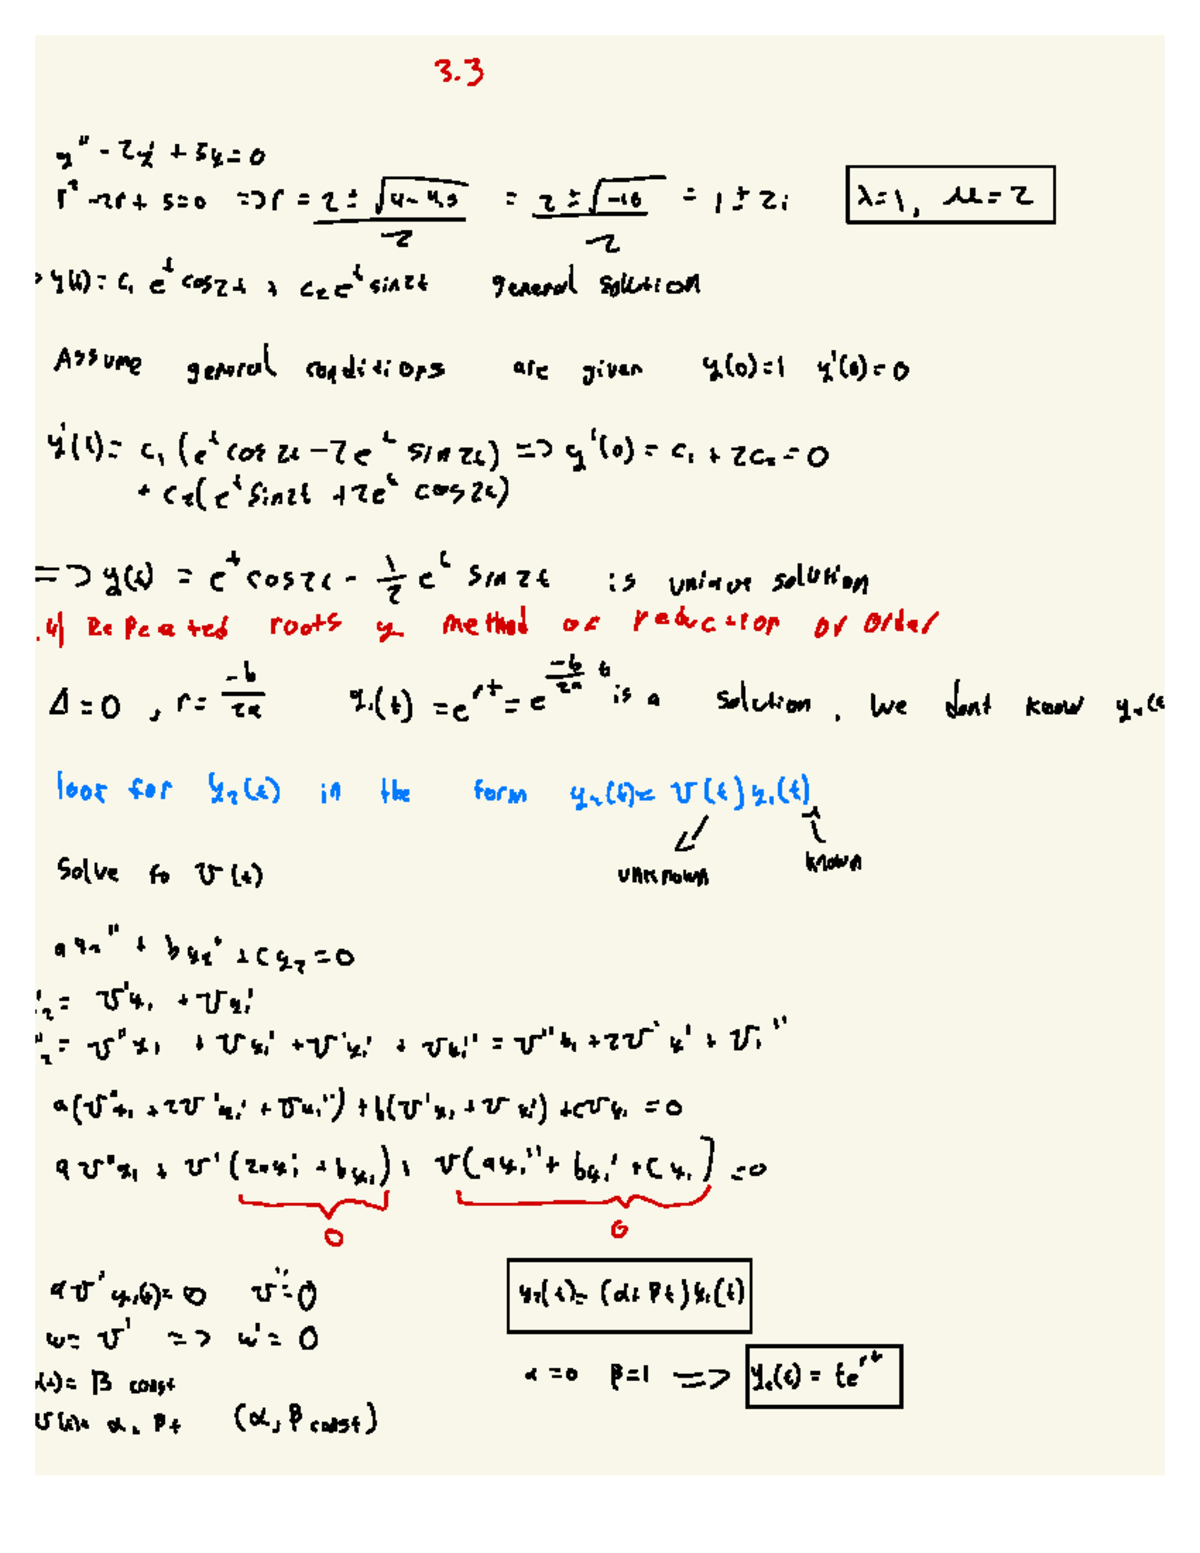 3.3
y'' - 2y' + 5y = 0
r² - 2r + 5 = 0 => r = (2 ± √(4 - 4.5))/2 = (2 ± √-16)/2 = 1 ± 2i λ=1, μ=2
y(t) = c₁ e^t cos2t + c₂ e^t sin2t general solution
Assume general conditions are given y(0)=1 y'(0)=0
y'(t) = c₁ (e^t cos 2t - 2e^t sin 2t) => y'(0) = c₁ + 2c₂ = 0
+ c₂(e^t sin2t + 2e^t cos 2t)
=> y(t) = e^t cos2t - 1/2 e^t sin 2t is unique solution
.4) Repeated roots y method of reduction of order
Δ = 0 , r = -b/2a y₁(t) = e^{rt} = e^{-b/2a t} is a solution, we dont know y₂(t
look for y₂(t) in the form y₂(t) = v(t) y₁(t)
unknown known
Solve fo v(t)
a y₂'' + b y₂' + c y₂ = 0
'₂ = v'y₁ + v y₁'
''₂ = v''y₁ + v'y₁' + v'y₁' + v y₁'' = v''y₁ + 2v'y' + v₁''
a(v''y₁ + 2v'y₁' + v y₁'') + b(v'y₁ + v y₁') + c v y₁ = 0
a v''y₁ + v'(2a y₁' + b y₁) + v(a y₁'' + b y₁' + c y₁) = 0
0 0
a v'' y₁(t) = 0 v'' = 0 y₂(t) = (α + βt) y₁(t)
w = v' => w' = 0
α = 0 β = 1 => y₂(t) = te^{rt}
(t) = β const
v(t) = α + βt (α, β const)